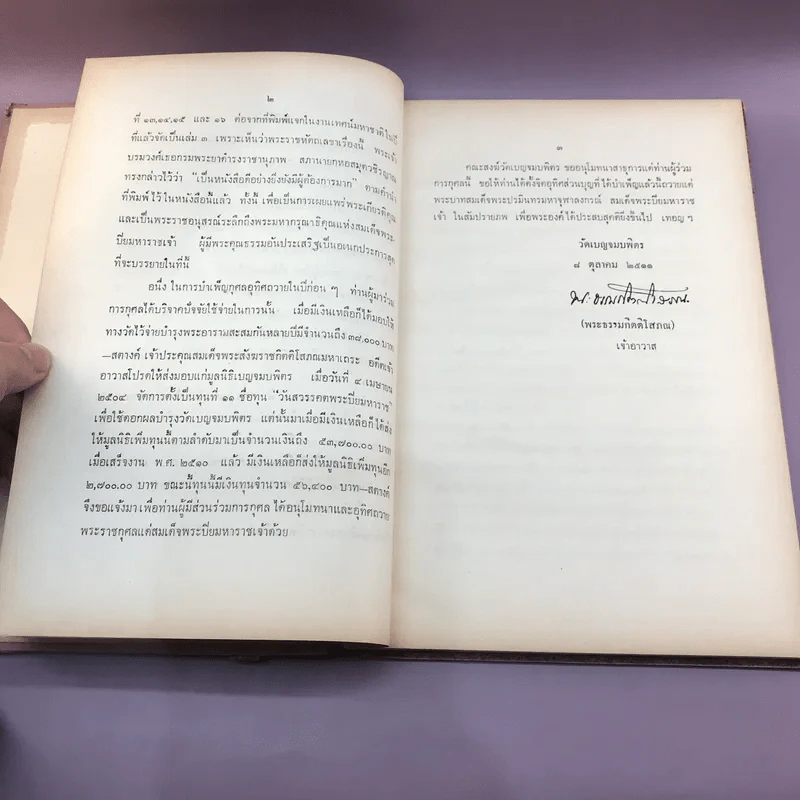 ๒
ที่ ๑๓,๑๔,๑๕ และ ๑๖ ต่อจากที่พิมพ์แจกในงานเทศน์มหาชาติในปี
ที่แล้วจัดเป็นเล่ม ๓ เพราะเห็นว่าพระราชหัตถเลขาเรื่องนี้ พระเจ้า
บรมวงศ์เธอกรมพระยาดำรงราชานุภาพ สภานายกหอสมุดวชิรญาณ
ทรงกล่าวไว้ว่า “เป็นหนังสือดีอย่างยิ่งยังมีผู้ต้องการมาก” ตามคำนำ
ที่พิมพ์ไว้ในหนังสือนี้แล้ว ทั้งนี้ เพื่อเป็นการเผยแพร่พระเกียรติคุณ
และเป็นพระราชอนุสรณ์ระลึกถึงพระมหากรุณาธิคุณแห่งสมเด็จพระ
ปิยมหาราชเจ้า ผู้มีพระคุณธรรมอันประเสริฐเป็นอเนกประการสุด
ที่จะบรรยายในที่นี้
อนึ่ง ในการบำเพ็ญกุศลอุทิศถวายในปีก่อน ๆ ท่านผู้มาร่วม
การกุศลได้บริจาคปัจจัยใช้จ่ายในการนั้น เมื่อมีเงินเหลือก็ได้มอบให้
ทางวัดไว้จ่ายบำรุงพระอารามสะสมกันหลายปีมีจำนวนถึง ๓๘,๐๐๐ บาท
—สตางค์ เจ้าประคุณสมเด็จพระสังฆราชกิตติโสภณมหาเถระ อดีตเจ้า
อาวาสโปรดให้ส่งมอบแก่มูลนิธิเบญจมบพิตร เมื่อวันที่ ๔ เมษายน
๒๕๐๔ จัดการตั้งเป็นทุนที่ ๑๑ ชื่อทุน “วันสวรรคตพระปิยมหาราช”
เพื่อใช้ดอกผลบำรุงวัดเบญจมบพิตร แต่นั้นมาเมื่อมีเงินเหลือก็ได้ส่ง
ให้มูลนิธิเพิ่มทุนนี้ตามลำดับมาเป็นจำนวนเงินถึง ๕๓,๗๐๐.๐๐ บาท
เมื่อเสร็จงาน พ.ศ. ๒๕๑๐ แล้ว มีเงินเหลือก็ส่งให้มูลนิธิเพิ่มทุนอีก
๒,๗๐๐.๐๐ บาท ขณะนี้ทุนนี้มีเงินทุนจำนวน ๕๖,๔๐๐ บาท—สตางค์
จึงขอแจ้งมา เพื่อท่านผู้มีส่วนร่วมการกุศล ได้อนุโมทนาและอุทิศถวาย
พระราชกุศลแด่สมเด็จพระปิยมหาราชเจ้าด้วย
๓
คณะสงฆ์วัดเบญจมบพิตร ขออนุโมทนาสาธุการแด่ท่านผู้ร่วม
การกุศลนี้ ขอให้ท่านได้ตั้งจิตอุทิศส่วนบุญที่ได้บำเพ็ญแล้วนี้ถวายแด่
พระบาทสมเด็จพระปรมินทรมหาจุฬาลงกรณ์ สมเด็จพระปิยมหาราช
เจ้า ในสัมปรายภพ เพื่อพระองค์ได้ประสบสุคติยิ่งขึ้นไป เทอญ ฯ
วัดเบญจมบพิตร
๘ ตุลาคม ๒๕๑๑
(พระธรรมกิตติโสภณ)
เจ้าอาวาส